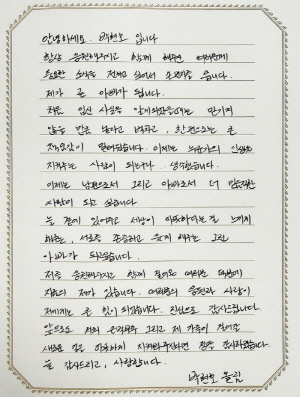 안녕하세요. 박현호 입니다
항상 응원해주시고 함께 해주신 여러분께
소중한 소식을 전하고 싶어서 손편지를 씁니다.
제가 곧 아빠가 됩니다.
처음 임신 사실을 알게되었을때는 믿기지
않을 만큼 놀라고 벅차고, 한편으로는 큰
책임감이 밀려왔습니다. 이제는 누군가의 인생을
지켜주는 사람이 되는구나 생각했습니다.
이제는 남편으로서 그리고 아빠로서 더 단단한
사람이 되고 싶습니다.
늘 곁에 있어주고 세상이 따뜻하다는걸 느끼게
해주는, 서로를 존중하고 웃게 해주는 그런
아빠가 되고싶습니다.
저를 응원해주시고 함께 걸어온 여러분 덕분에
지금의 제가 있습니다. 여러분의 응원과 사랑이
저에게는 큰 힘이 되었습니다. 진심으로 감사드립니다.
앞으로도 저와 은가은 그리고 제 가족이 걸어갈
새로운 길을 따뜻하게 지켜봐주신다면 정말 감사하겠습니다.
늘 감사드리고, 사랑합니다.
박현호 올림